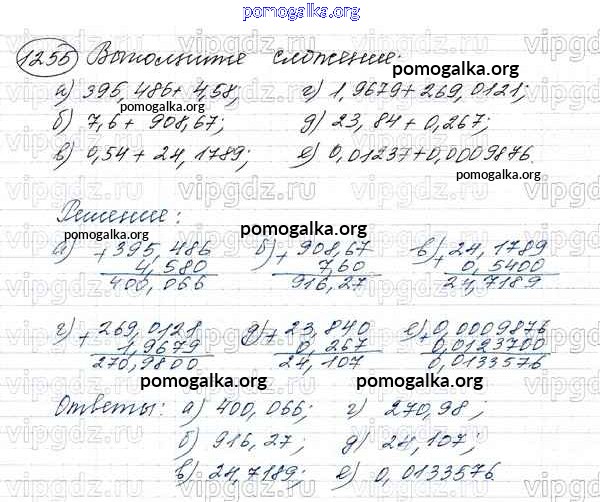 pomogalka.org
1255 Выполните сложение:
pomogalka.org
а) 395,486 + 4,58; г) 1,9679 + 269,0121;
pomogalka.org
б) 7,6 + 908,67; д) 23,84 + 0,267;
pomogalka.org
в) 0,54 + 24,1789; е) 0,01237 + 0,0009876.
Решение:
pomogalka.org
а) + 395,486 б) + 908,67 в) + 24,1789
4,580 7,60 0,5400
400,066 916,27 24,7189
г) + 269,0121 д) + 23,840 е) + 0,0009876
1,9679 0,267 0,0123700
270,9800 24,107 0,0133576
pomogalka.org pomogalka.org
Ответы: а) 400,066; г) 270,98;
б) 916,27; д) 24,107;
pomogalka.org
в) 24,7189; е) 0,0133576.
vipgdz.ru